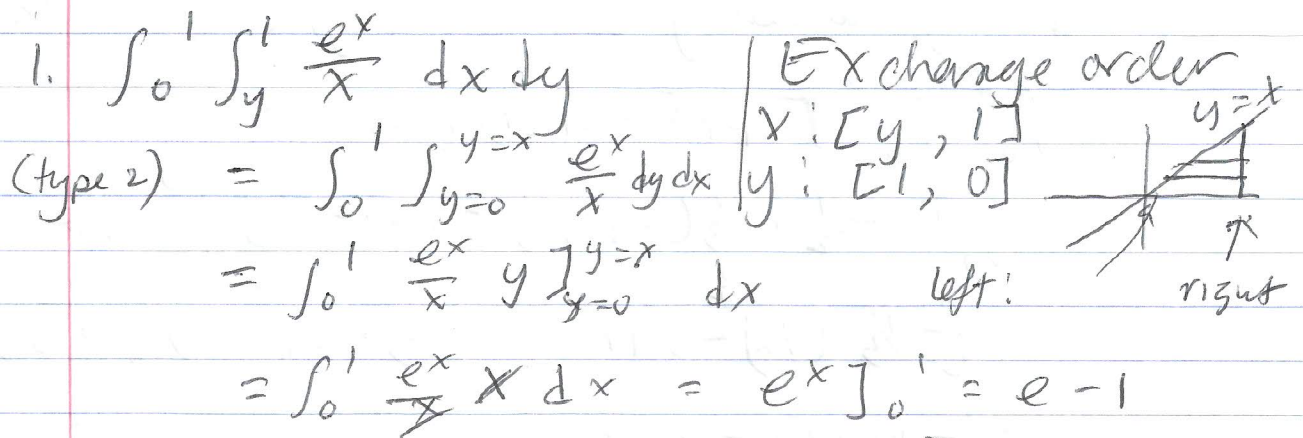 1. ∫₀¹ ∫_y¹ e^x/x dx dy | Exchange order
x: [y, 1] y = x
(type 2) = ∫₀¹ ∫_{y=0}^{y=x} e^x/x dy dx | y: [1, 0]
= ∫₀¹ e^x/x y ]_{y=0}^{y=x} dx left: right
= ∫₀¹ e^x/x x dx = e^x ]₀¹ = e - 1